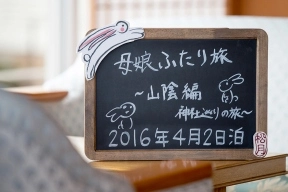 母娘ふたり旅
～山陰編
神社巡りの旅～
2016年4月2日泊
松月